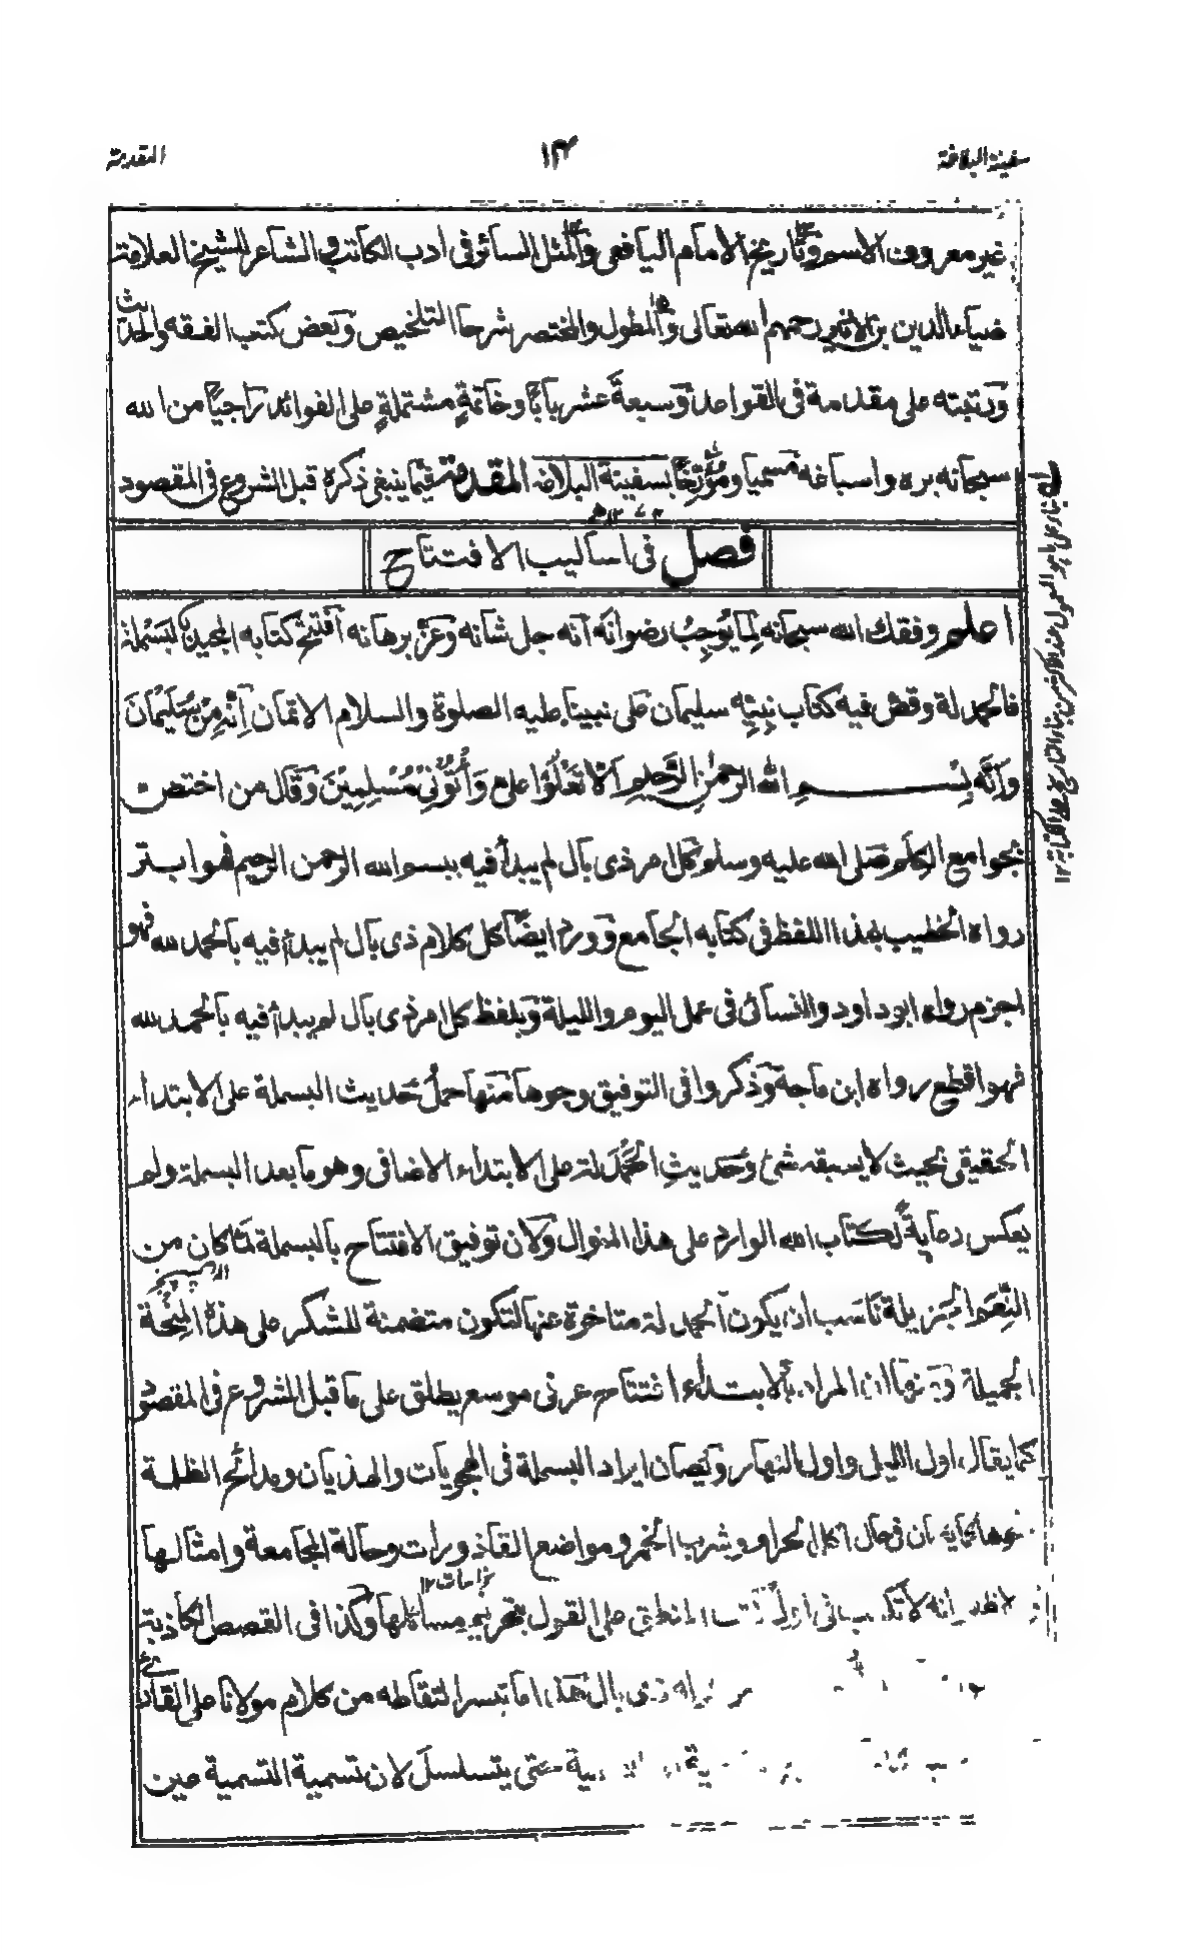 سفينة البلاغة
١٣
المقدمة
غير معروف الاسم وتاريخ الامام اليافعي والمثل السائر في ادب الكاتب والشاعر للشيخ العلامة
ضياء الدين بن الاثير رحمهم الله تعالى والمطول والمختصر شرحا التلخيص وبعض كتب الفقه والحديث
ورتبته على مقدمة في القواعد وسبعة عشر بابًا وخاتمةٍ مشتملةٍ على الفوائد راجيًا من الله
سبحانه بره واسباغه مسميا ومؤرخًا بسفينة البلاغة المقدمة فيما ينبغي ذكره قبل الشروع في المقصود
فصل في اساليب الافتتاح
اعلم وفقك الله سبحانه لِما يُوجِبُ رضوانه انه جل شانه وعزّ برهانه افتتح كتابه المجيد بالبَسْملة
فالحمدلة وقصّ فيه كتاب نبيّه سليمان على نبينا وعليه الصلوة والسلام الاتمان اِنَّهٗ مِنْ سُلَيْمٰانَ
وَاِنَّه بِسْــــمِ الله الرحمٰنِ الرَّحِيْمِ اَلَّا تَعْلُوْا عَلَيَّ وَأْتُوْنِيْ مُسْلِمِيْنَ وقال من اختص
بجوامع الكلم صلى الله عليه وسلم كل امر ذى بال لم يبدأ فيه ببسم الله الرحمن الرحيم فهو ابتر
رواه الخطيب بهذا اللفظ في كتابه الجامع وورد ايضًا كل كلام ذى بال لم يبدأ فيه بالحمد لله فهو
اجزم رواه ابو داود والنسائى فى عمل اليوم والليلة وبلفظ كل امر ذى بال لم يبدأ فيه بالحمد لله
فهو اقطع رواه ابن ماجة وذكروا فى التوفيق وجوها منها حملُ حديث البسملة على الابتداء
الحقيقى بحيث لا يسبقه شئ وحديثِ الحَمْدَلة على الابتداء الاضافى وهو ما بعد البسملة ولم
يعكس رعايةً لكتاب الله الوارد على هذا المنوال ولان توفيق الافتتاح بالبسملة لما كان من
النِّعَم الجزيلة ناسب ان يكون الحمدلة متاخرة عنها لتكون متضمنة للشكر على هذه المِنْحَة
الجميلة ومنها ان المراد بالابتداء افتتاح عرفى موسع يطلق على ما قبل الشروع فى المقصود
كما يقال اول الليل واول النهار ويصان ايراد البسملة فى الهجويات والهذيان ومدائح الظلمة
ونحوها كما يصان فى حال اكل الحرام وشرب الخمر ومواضع القاذورات وحالة المجامعة وامثالها
انه لا تكتب فى القول بتحريم مسائلها وكذا فى القصص الكاذبة
بال هذا ما تيسر التقاطه من كلام مولانا على القارئ
حتى يتسلسل لان تسمية التسمية عين